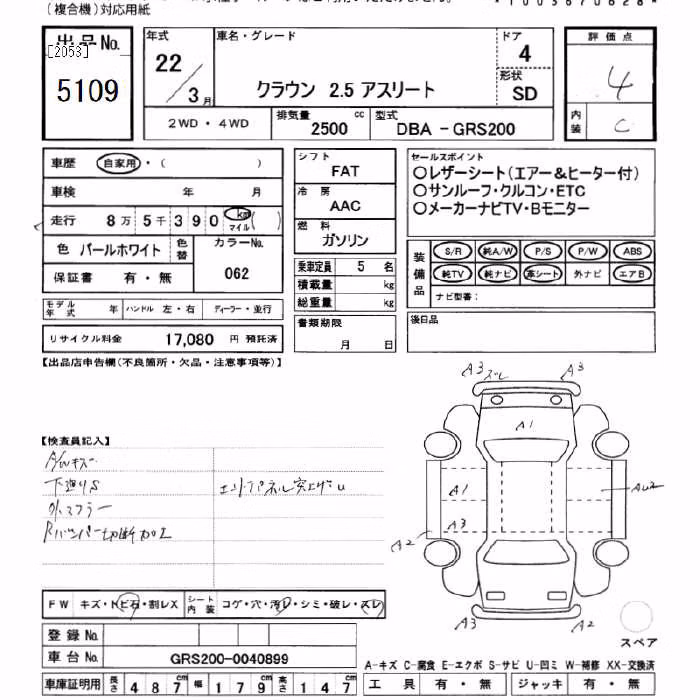 (複合機)対応用紙
出品No.
[2053]
5109
年式
22
3月
車名・グレード
クラウン 2.5 アスリート
ドア
4
形状
SD
評価点
4
内装
C
2WD・4WD
排気量
2500 cc
型式
DBA-GRS200
車歴 自家用・( )
車検 年 月
走行 8万5千390 km マイル ( )
色 パールホワイト 色替
カラーNo.
062
保証書 有・無
シフト
FAT
冷房
AAC
燃料
ガソリン
乗車定員 5 名
積載量 kg
総重量 kg
セールスポイント
○レザーシート(エアー&ヒーター付)
○サンルーフ・クルコン・ETC
○メーカーナビTV・Bモニター
装備品
S/R 純A/W P/S P/W ABS
純TV 純ナビ 革シート 外ナビ エアB
ナビ型番:
モデル年式 年 ハンドル 左・右 ディーラー・並行
リサイクル料金 17,080 円 預託済
書類期限
月 日
後日品
【出品店申告欄(不良箇所・欠品・注意事項等)】
【検査員記入】
A/Wキズ
下廻りS
外マフラー
Rバンパー切断加工
エンドパネル突上げU
A3 ズレ A3
A1
A1
AU2
A3
A2
A3 A2
スペア
FW キズ・トビ石・割レX
シート内装 コゲ・穴・汚レ・シミ・破レ・スレ
登録No.
車台No. GRS200-0040899
A-キズ C-腐食 E-エクボ S-サビ U-凹ミ W-補修 XX-交換済
車庫証明用 長さ 487cm 幅 179cm 高さ 147cm
工具 有・無 ジャッキ 有・無